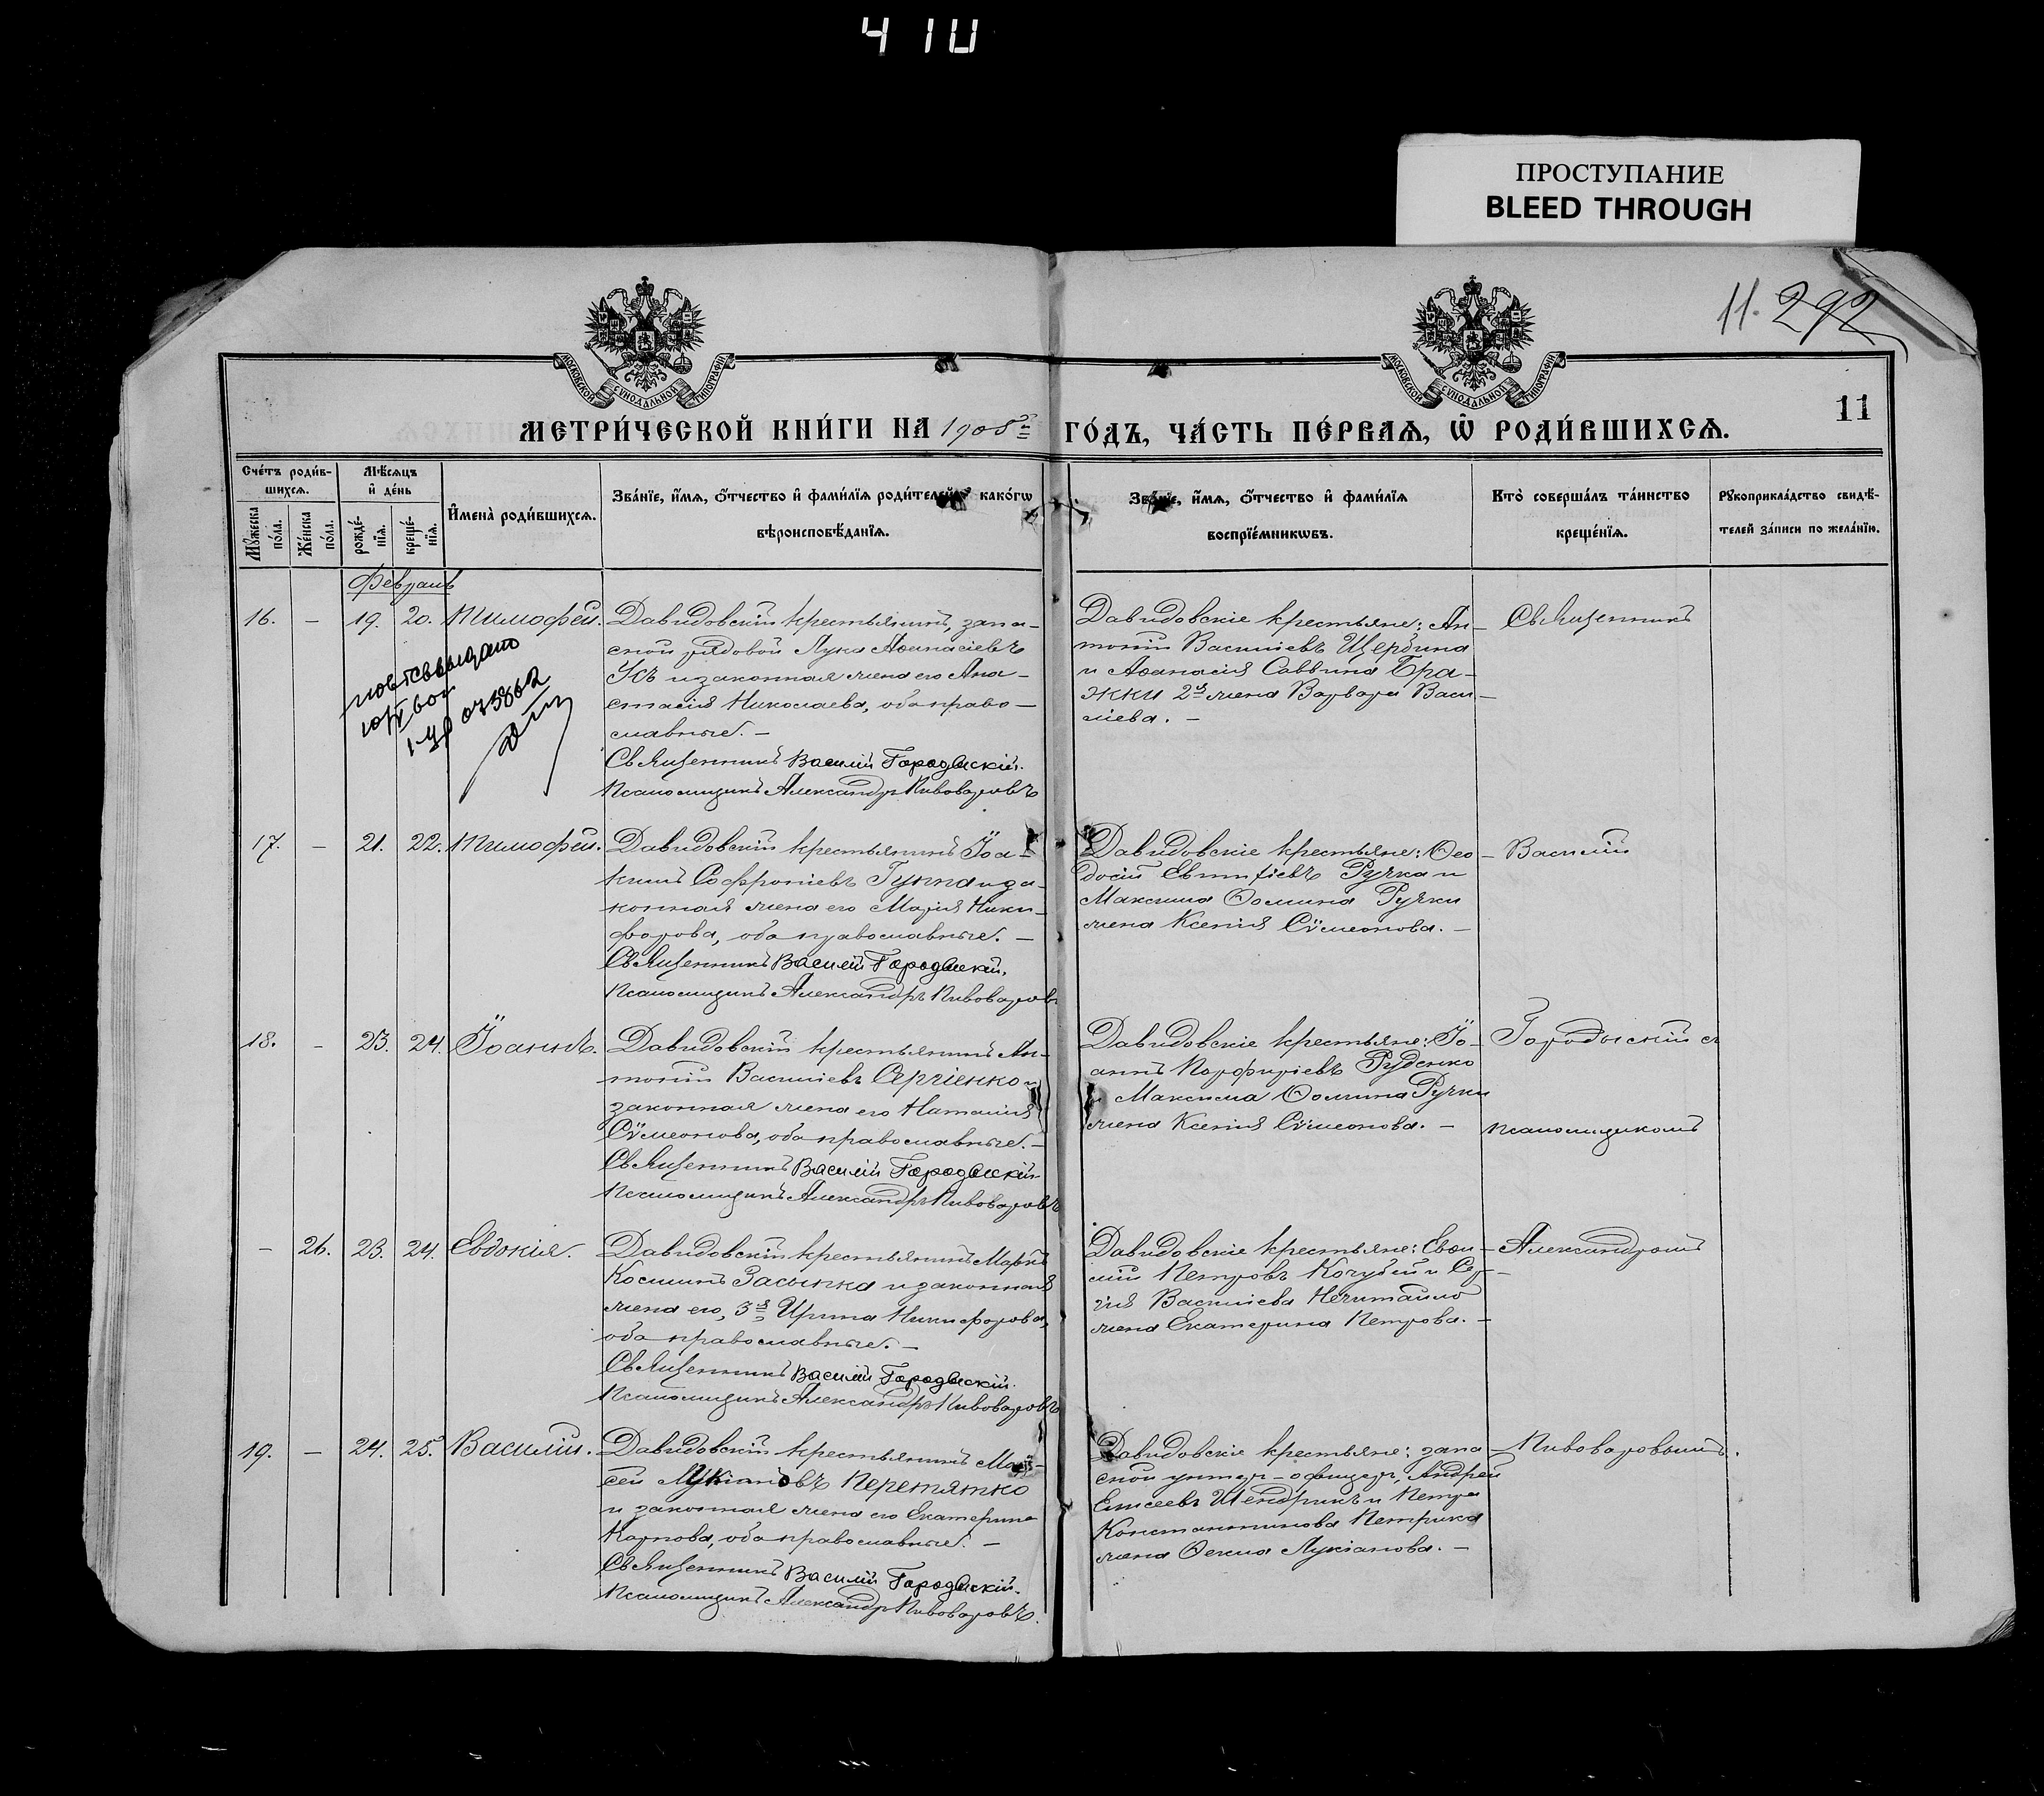 410
ПРОСТУПАНИЕ
BLEED THROUGH
11. 292
МОСКОВСКОЙ СѴНОДАЛЬНОЙ ТИПОГРАФІИ
МОСКОВСКОЙ СѴНОДАЛЬНОЙ ТИПОГРАФІИ
11
МЕТРИ́ЧЕСКОЙ КНИ́ГИ НА 1908й ГО́ДЪ, ЧА́СТЬ ПЕ́РВАѦ, Ѽ РОДИ́ВШИХСѦ.
Сче́тъ роди́в-
шихсѧ.
Мꙋ́жеска по́ла.
Же́нска по́ла.
Мѣ́сѧцъ
и҆ де́нь
рожде́-
нїѧ.
креще́-
нїѧ.
И҆мена̀ роди́вшихсѧ.
Зва́нїе, и҆́мѧ, ѻ҆́тчество и҆ фами́лїѧ роди́телей, како́гѡ
вѣроисповѣ́данїѧ.
Зва́нїе, и҆́мѧ, ѻ҆́тчество и҆ фами́лїѧ
воспрїе́мникѡвъ.
Кто̀ соверша́лъ та́инство
креще́нїѧ.
Рꙋкоприкла́дство свидѣ́-
телей за́писи по жела́нїю.
Февраль
16. – 19. 20. Тимофей.
Давидовскій крестьянинъ, запа-
сной рядовой Лука Аѳанасіевъ
Усъ и законная жена его Ана-
стасія Николаева, оба право-
славные. –
Священникъ Василій Городыскій.
Псаломщикъ Александръ Пивоваровъ
Давидовскіе крестьяне: Ан-
тоній Василіевъ Щербина
и Аѳанасія Саввина Бра-
жки 2я жена Варвара Васи-
лиева. –
Священникъ
17. – 21. 22. Тимофей.
Давидовскій крестьянинъ Іоа-
кимъ Софроніевъ Гуппа и за-
конная жена его Марія Ники-
форова, оба православные. –
Священникъ Василій Городыскій.
Псаломщикъ Александръ Пивоваровъ
Давидовскіе крестьяне: Ѳео-
досій Евтихіевъ Ручка и
Максима Ѳомина Ручки
жена Ксенія Сѵмеонова. –
Василій
18. – 23. 24. Іоаннъ.
Давидовскій крестьянинъ Ан-
тоній Василіевъ Сергіенко и
законная жена его Наталія
Сѵмеонова, оба православные. –
Священникъ Василій Городыскій
Псаломщикъ Александръ Пивоваровъ
Давидовскіе крестьяне: Іо-
аннъ Порфиріевъ Руденко
и Максима Ѳомина Ручки
жена Ксенія Сѵмеонова. –
Городыскій съ
псаломщикомъ
– 26. 23. 24. Евдокія.
Давидовскій крестьянинъ Маркъ
Космин Засыпка и законная
жена его, 3я Ирина Никифорова,
оба православные. –
Священникъ Василій Городыскій.
Псаломщикъ Александръ Пивоваровъ
Давидовскіе крестьяне: Евѳи-
мій Петровъ Кочубей и Сер-
гія Василіева Нечитайло
жена Екатерина Петрова. –
Александромъ
19. – 24. 25. Василій.
Давидовскій крестьянинъ Моѵ-
сей Лукіановъ Перетятко
и законная жена его Екатерина
Карпова, оба православные. –
Священникъ Василій Городыскій.
Псаломщикъ Александръ Пивоваровъ.
Давидовскіе крестьяне: запа-
сной унтеръ-офицеръ, Андрей
Елисеевъ Шендрикъ и Петра
Константинова Петрика
жена Ѳекла Лукіанова. –
Пивоваровымъ.